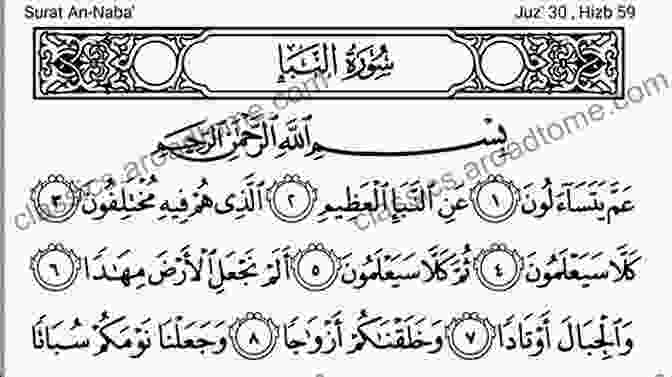 Surat An-Naba' Juz' 30 , Hizb 59
سُورَةُ النَّبَإِ
بِسْمِ اللَّهِ الرَّحْمَٰنِ الرَّحِيمِ
عَمَّ يَتَسَاءَلُونَ ١ عَنِ النَّبَإِ الْعَظِيمِ ٢ الَّذِي هُمْ فِيهِ مُخْتَلِفُونَ ٣
كَلَّا سَيَعْلَمُونَ ٤ ثُمَّ كَلَّا سَيَعْلَمُونَ ٥ أَلَمْ نَجْعَلِ الْأَرْضَ مِهَادًا ٦
وَالْجِبَالَ أَوْتَادًا ٧ وَخَلَقْنَاكُمْ أَزْوَاجًا ٨ وَجَعَلْنَا نَوْمَكُمْ سُبَاتًا
classics.aroadtome.com
classics.aroadtome.com